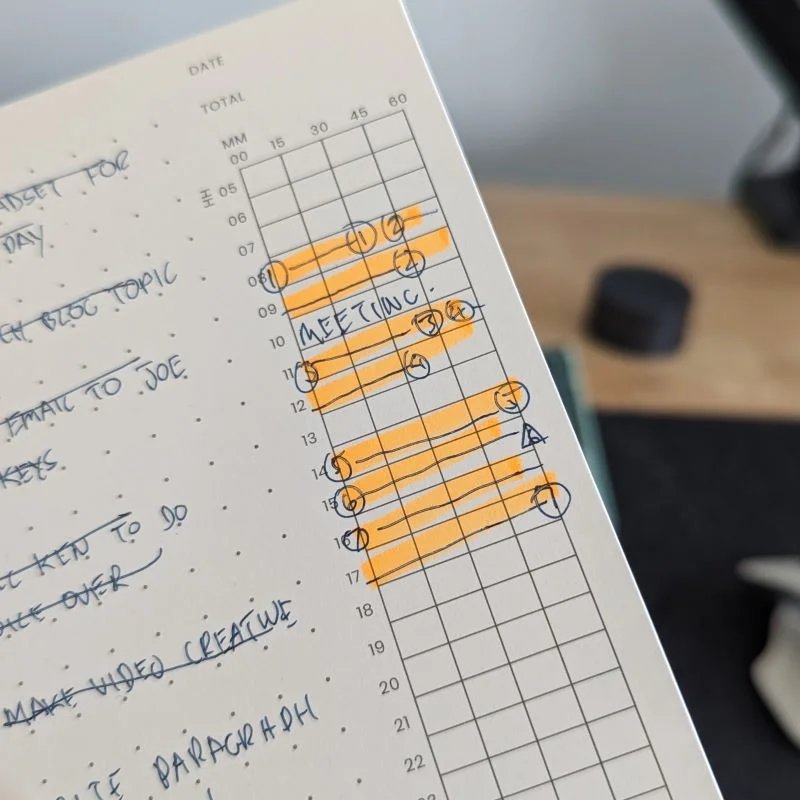 DATE
TOTAL
MM
00 15 30 45 60
HH
05
06
07
08
09
10
11
12
13
14
15
16
17
18
19
20
21
22
FOR
DAY.
BLOG TOPIC
EMAIL TO JOE
KEYS.
KEN TO DO
OVER
MAKE VIDEO CREATIVE
PARAGRAPH
1 1 2
2
MEETING.
3 3 4
4
5 5
6 6
7
7